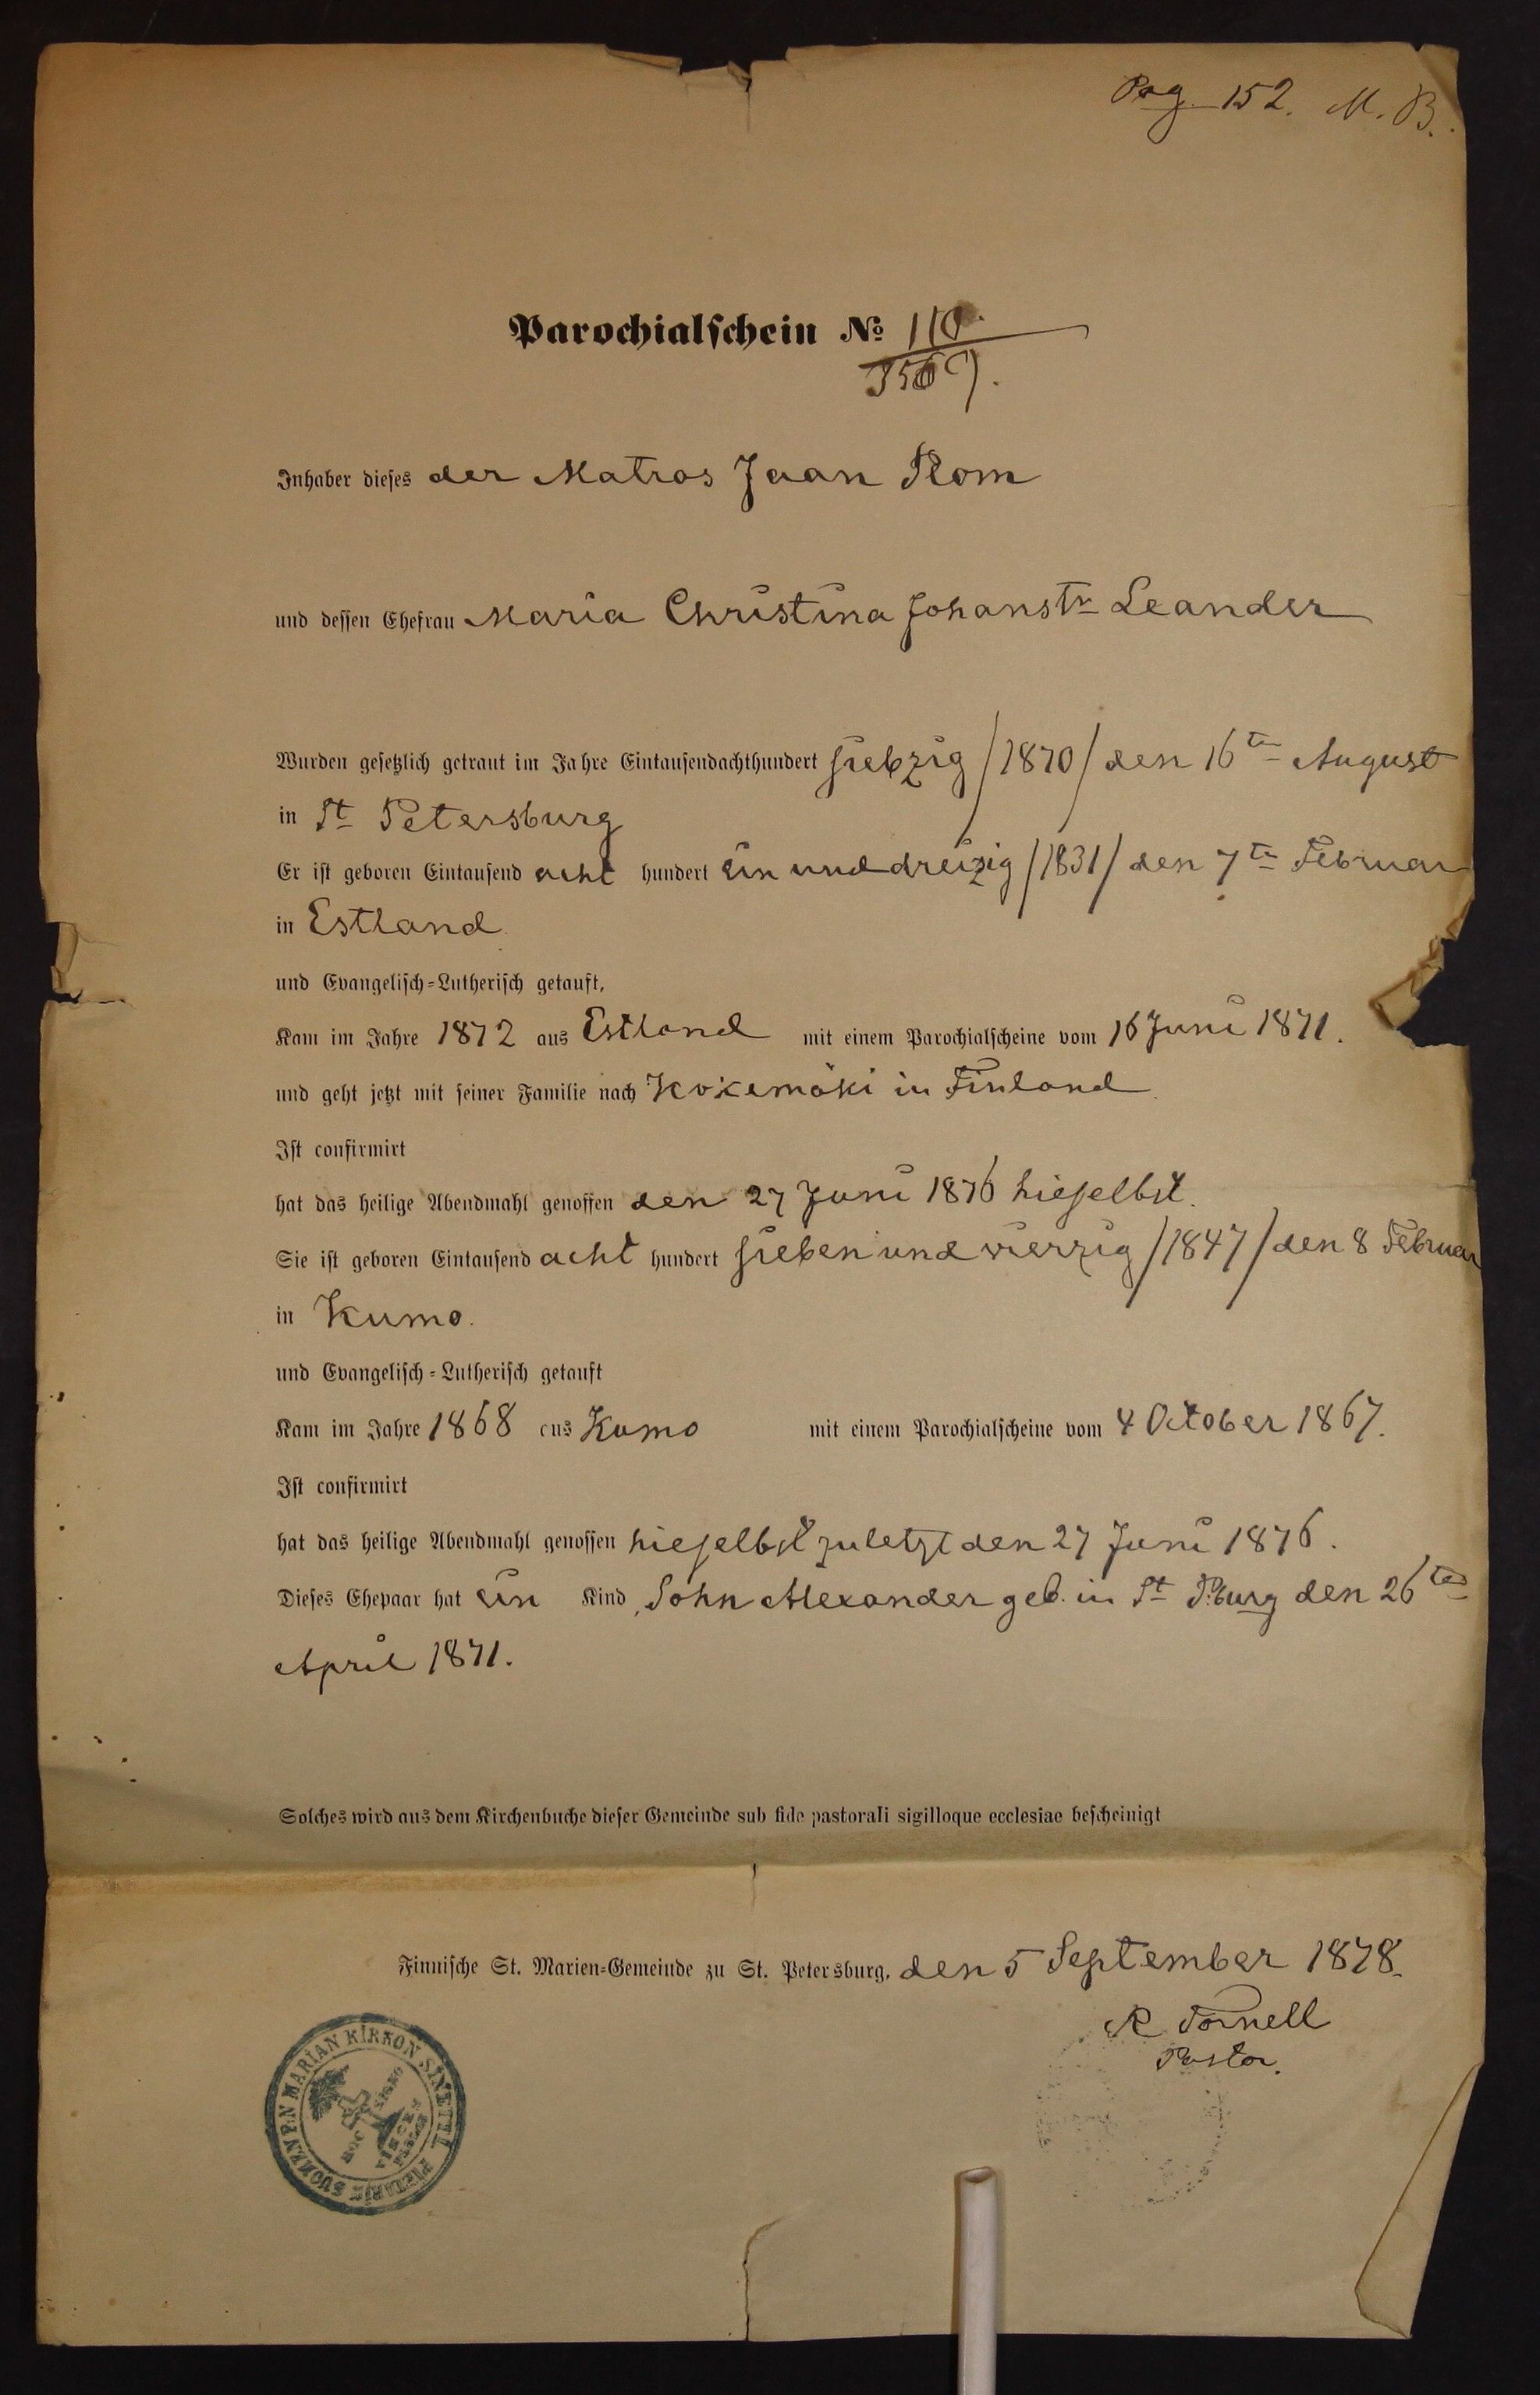 Pag. 152. M. B.
Parochialschein № 110.
Inhaber dieses der Matros Jaan Rom
und dessen Ehefrau Maria Christina Johanstr Leander
Wurden gesetzlich getraut im Jahre Eintausendachthundert siebzig /1870/ den 16ten August
in St Petersburg
Er ist geboren Eintausend acht hundert ein und dreizig /1831/ den 7ten Februar
in Estland
und Evangelisch-Lutherisch getauft,
Kam im Jahre 1872 aus Estland mit einem Parochialscheine vom 16 Juni 1871.
und geht jetzt mit seiner Familie nach Kokemäki in Finland.
Ist confirmirt
hat das heilige Abendmahl genossen den 27 Juni 1876 hieselbst.
Sie ist geboren Eintausend acht hundert sieben und vierzig /1847/ den 8 Februar
in Kumo.
und Evangelisch-Lutherisch getauft
Kam im Jahre 1868 aus Kumo mit einem Parochialscheine vom 4 October 1867.
Ist confirmirt
hat das heilige Abendmahl genossen hieselbst zuletzt den 27 Juni 1876.
Dieses Ehepaar hat ein Kind, Sohn Alexander geb. in St P:burg den 26ten
April 1871.
Solches wird aus dem Kirchenbuche dieser Gemeinde sub fide pastorali sigilloque ecclesiae bescheinigt
Finnische St. Marien-Gemeinde zu St. Petersburg, den 5 September 1878.
R Törnell
Pastor.
PIETARIN SUOMENPN MARIAN KIRKON SINETTI